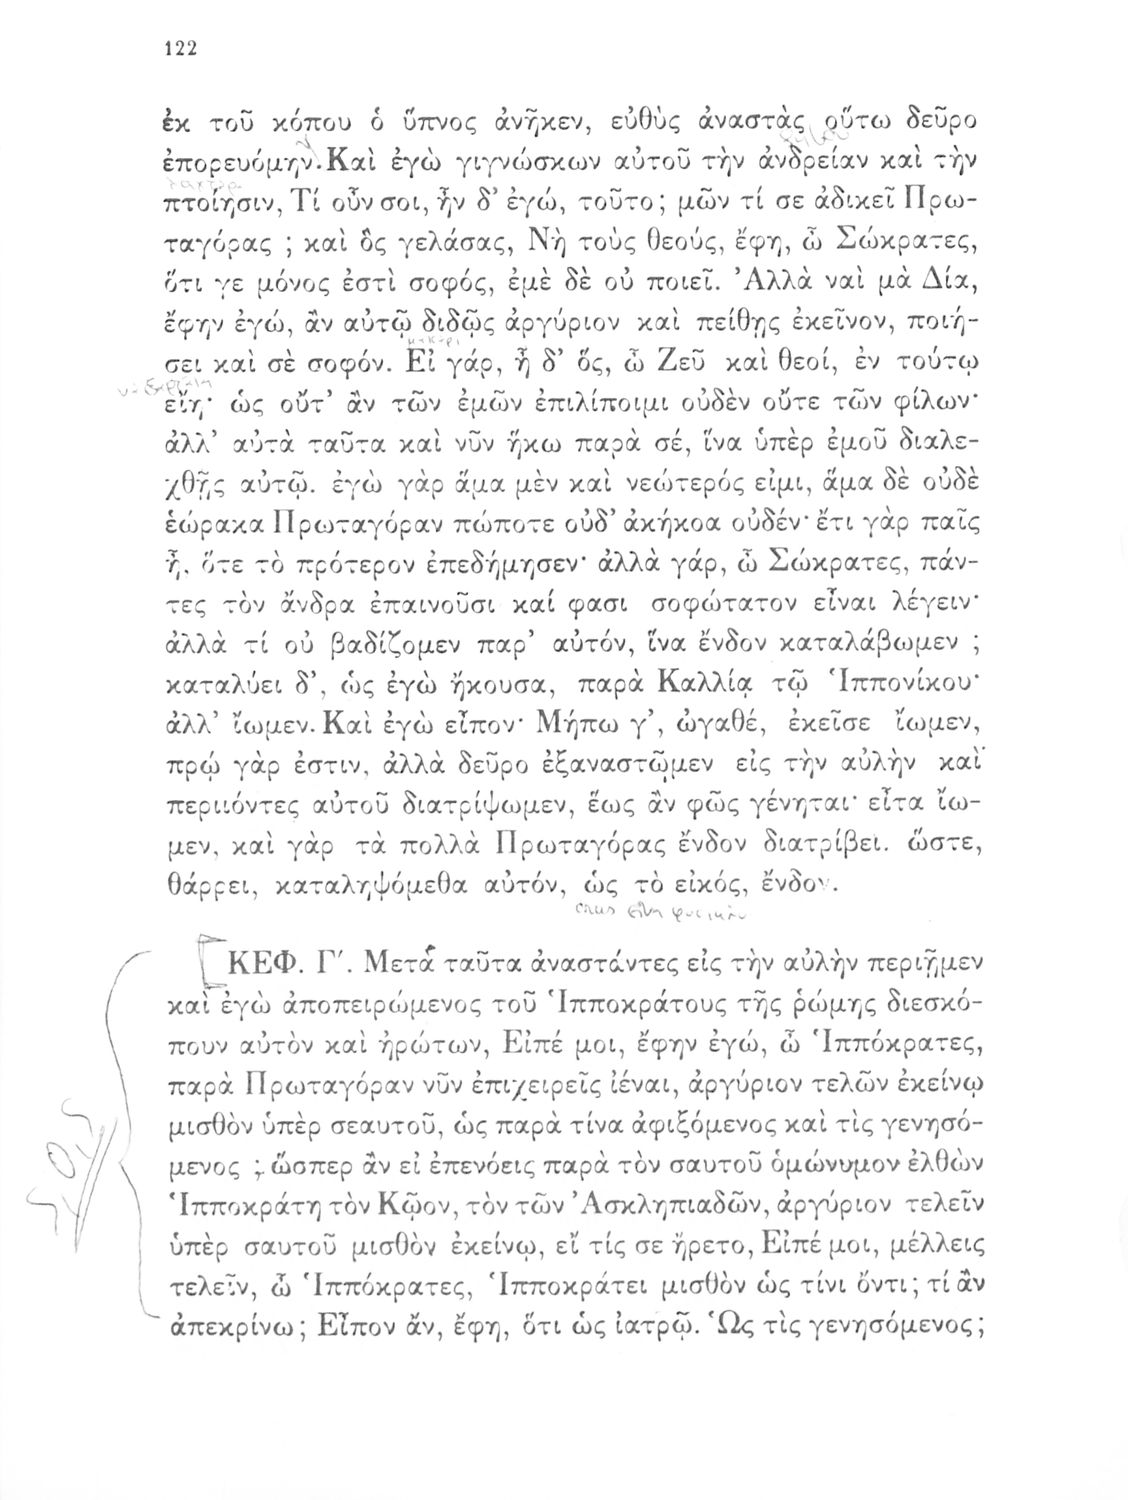 122
ἐκ τοῦ κόπου ὁ ὕπνος ἀνῆκεν, εὐθὺς ἀναστὰς οὕτω δεῦρο
ἐπορευόμην. Καὶ ἐγὼ γιγνώσκων αὐτοῦ τὴν ἀνδρείαν καὶ τὴν
πτοίησιν, Τί οὖν σοι, ἦν δ’ ἐγώ, τοῦτο; μῶν τί σε ἀδικεῖ Πρω-
ταγόρας ; καὶ ὃς γελάσας, Νὴ τοὺς θεούς, ἔφη, ὦ Σώκρατες,
ὅτι γε μόνος ἐστὶ σοφός, ἐμὲ δὲ οὐ ποιεῖ. Ἀλλὰ ναὶ μὰ Δία,
ἔφην ἐγώ, ἂν αὐτῷ διδῷς ἀργύριον καὶ πείθῃς ἐκεῖνον, ποιή-
σει καὶ σὲ σοφόν. Εἰ γάρ, ἦ δ’ ὅς, ὦ Ζεῦ καὶ θεοί, ἐν τούτῳ
εἴη· ὡς οὔτ’ ἂν τῶν ἐμῶν ἐπιλίποιμι οὐδὲν οὔτε τῶν φίλων·
ἀλλ’ αὐτὰ ταῦτα καὶ νῦν ἥκω παρὰ σέ, ἵνα ὑπὲρ ἐμοῦ διαλε-
χθῇς αὐτῷ. ἐγὼ γὰρ ἅμα μὲν καὶ νεώτερός εἰμι, ἅμα δὲ οὐδὲ
ἑώρακα Πρωταγόραν πώποτε οὐδ’ ἀκήκοα οὐδέν· ἔτι γὰρ παῖς
ἦ, ὅτε τὸ πρότερον ἐπεδήμησεν· ἀλλὰ γάρ, ὦ Σώκρατες, πάν-
τες τὸν ἄνδρα ἐπαινοῦσι καί φασι σοφώτατον εἶναι λέγειν·
ἀλλὰ τί οὐ βαδίζομεν παρ’ αὐτόν, ἵνα ἔνδον καταλάβωμεν ;
καταλύει δ’, ὡς ἐγὼ ἤκουσα, παρὰ Καλλίᾳ τῷ Ἱππονίκου·
ἀλλ’ ἴωμεν. Καὶ ἐγὼ εἶπον· Μήπω γ’, ὠγαθέ, ἐκεῖσε ἴωμεν,
πρῴ γάρ ἐστιν, ἀλλὰ δεῦρο ἐξαναστῶμεν εἰς τὴν αὐλὴν καὶ
περιιόντες αὐτοῦ διατρίψωμεν, ἕως ἂν φῶς γένηται· εἶτα ἴω-
μεν, καὶ γὰρ τὰ πολλὰ Πρωταγόρας ἔνδον διατρίβει. ὥστε,
θάρρει, καταληψόμεθα αὐτόν, ὡς τὸ εἰκός, ἔνδον.
ΚΕΦ. Γ′. Μετὰ ταῦτα ἀναστάντες εἰς τὴν αὐλὴν περιῇμεν
καὶ ἐγὼ ἀποπειρώμενος τοῦ Ἱπποκράτους τῆς ῥώμης διεσκό-
πουν αὐτὸν καὶ ἠρώτων, Εἰπέ μοι, ἔφην ἐγώ, ὦ Ἱππόκρατες,
παρὰ Πρωταγόραν νῦν ἐπιχειρεῖς ἰέναι, ἀργύριον τελῶν ἐκείνῳ
μισθὸν ὑπὲρ σεαυτοῦ, ὡς παρὰ τίνα ἀφιξόμενος καὶ τίς γενησό-
μενος ; ὥσπερ ἂν εἰ ἐπενόεις παρὰ τὸν σαυτοῦ ὁμώνυμον ἐλθὼν
Ἱπποκράτη τὸν Κῷον, τὸν τῶν Ἀσκληπιαδῶν, ἀργύριον τελεῖν
ὑπὲρ σαυτοῦ μισθὸν ἐκείνῳ, εἴ τίς σε ἤρετο, Εἰπέ μοι, μέλλεις
τελεῖν, ὦ Ἱππόκρατες, Ἱπποκράτει μισθὸν ὡς τίνι ὄντι; τί ἂν
ἀπεκρίνω; Εἶπον ἄν, ἔφη, ὅτι ὡς ἰατρῷ. Ὡς τὶς γενησόμενος;